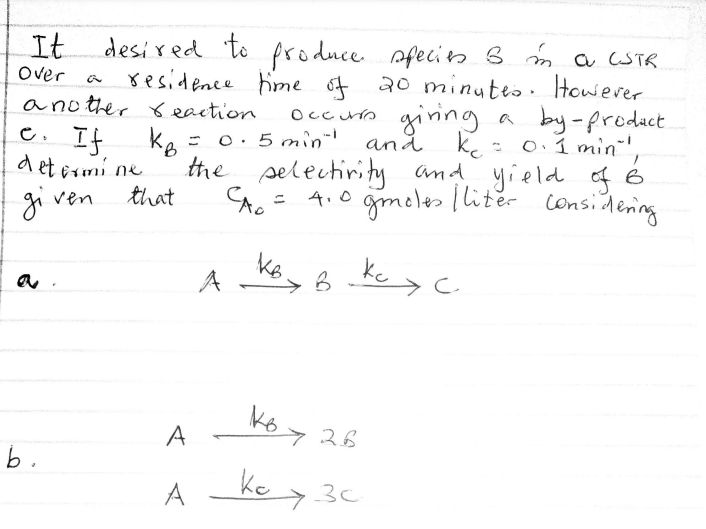 It desired to produce species B in a CSTR
over a residence time of 20 minutes. However
another reaction occurs giving a by-product
C. If kB = 0.5 min⁻¹ and kc = 0.1 min⁻¹,
determine the selectivity and yield of B
given that CAo = 4.0 gmoles/liter considering
a. A kB → B kc → C
A kB → 2B
b.
A kc → 3C